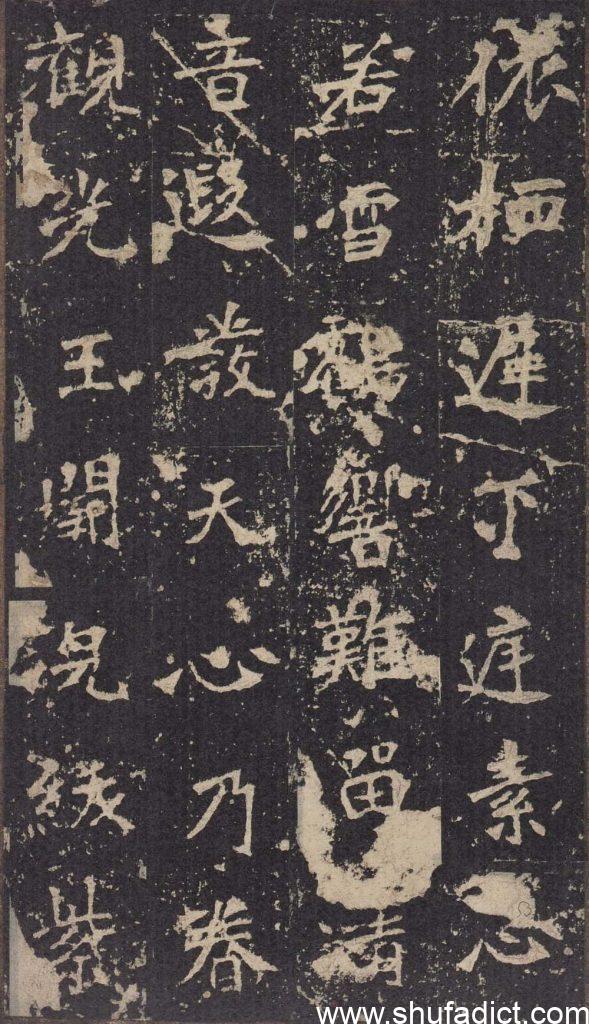 依栖遲下庭素心
若雪鶴響難留清
音遐發天心乃眷
觀光王開況紱紫
www.shufadict.com